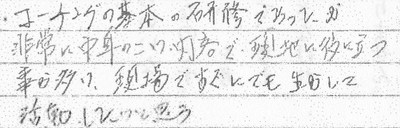 ・コーチングの基本の研修であったが
非常に中身のこい内容で、現地に役に立つ
事が多く、現場ですぐにでも生かして
活動したいと思う